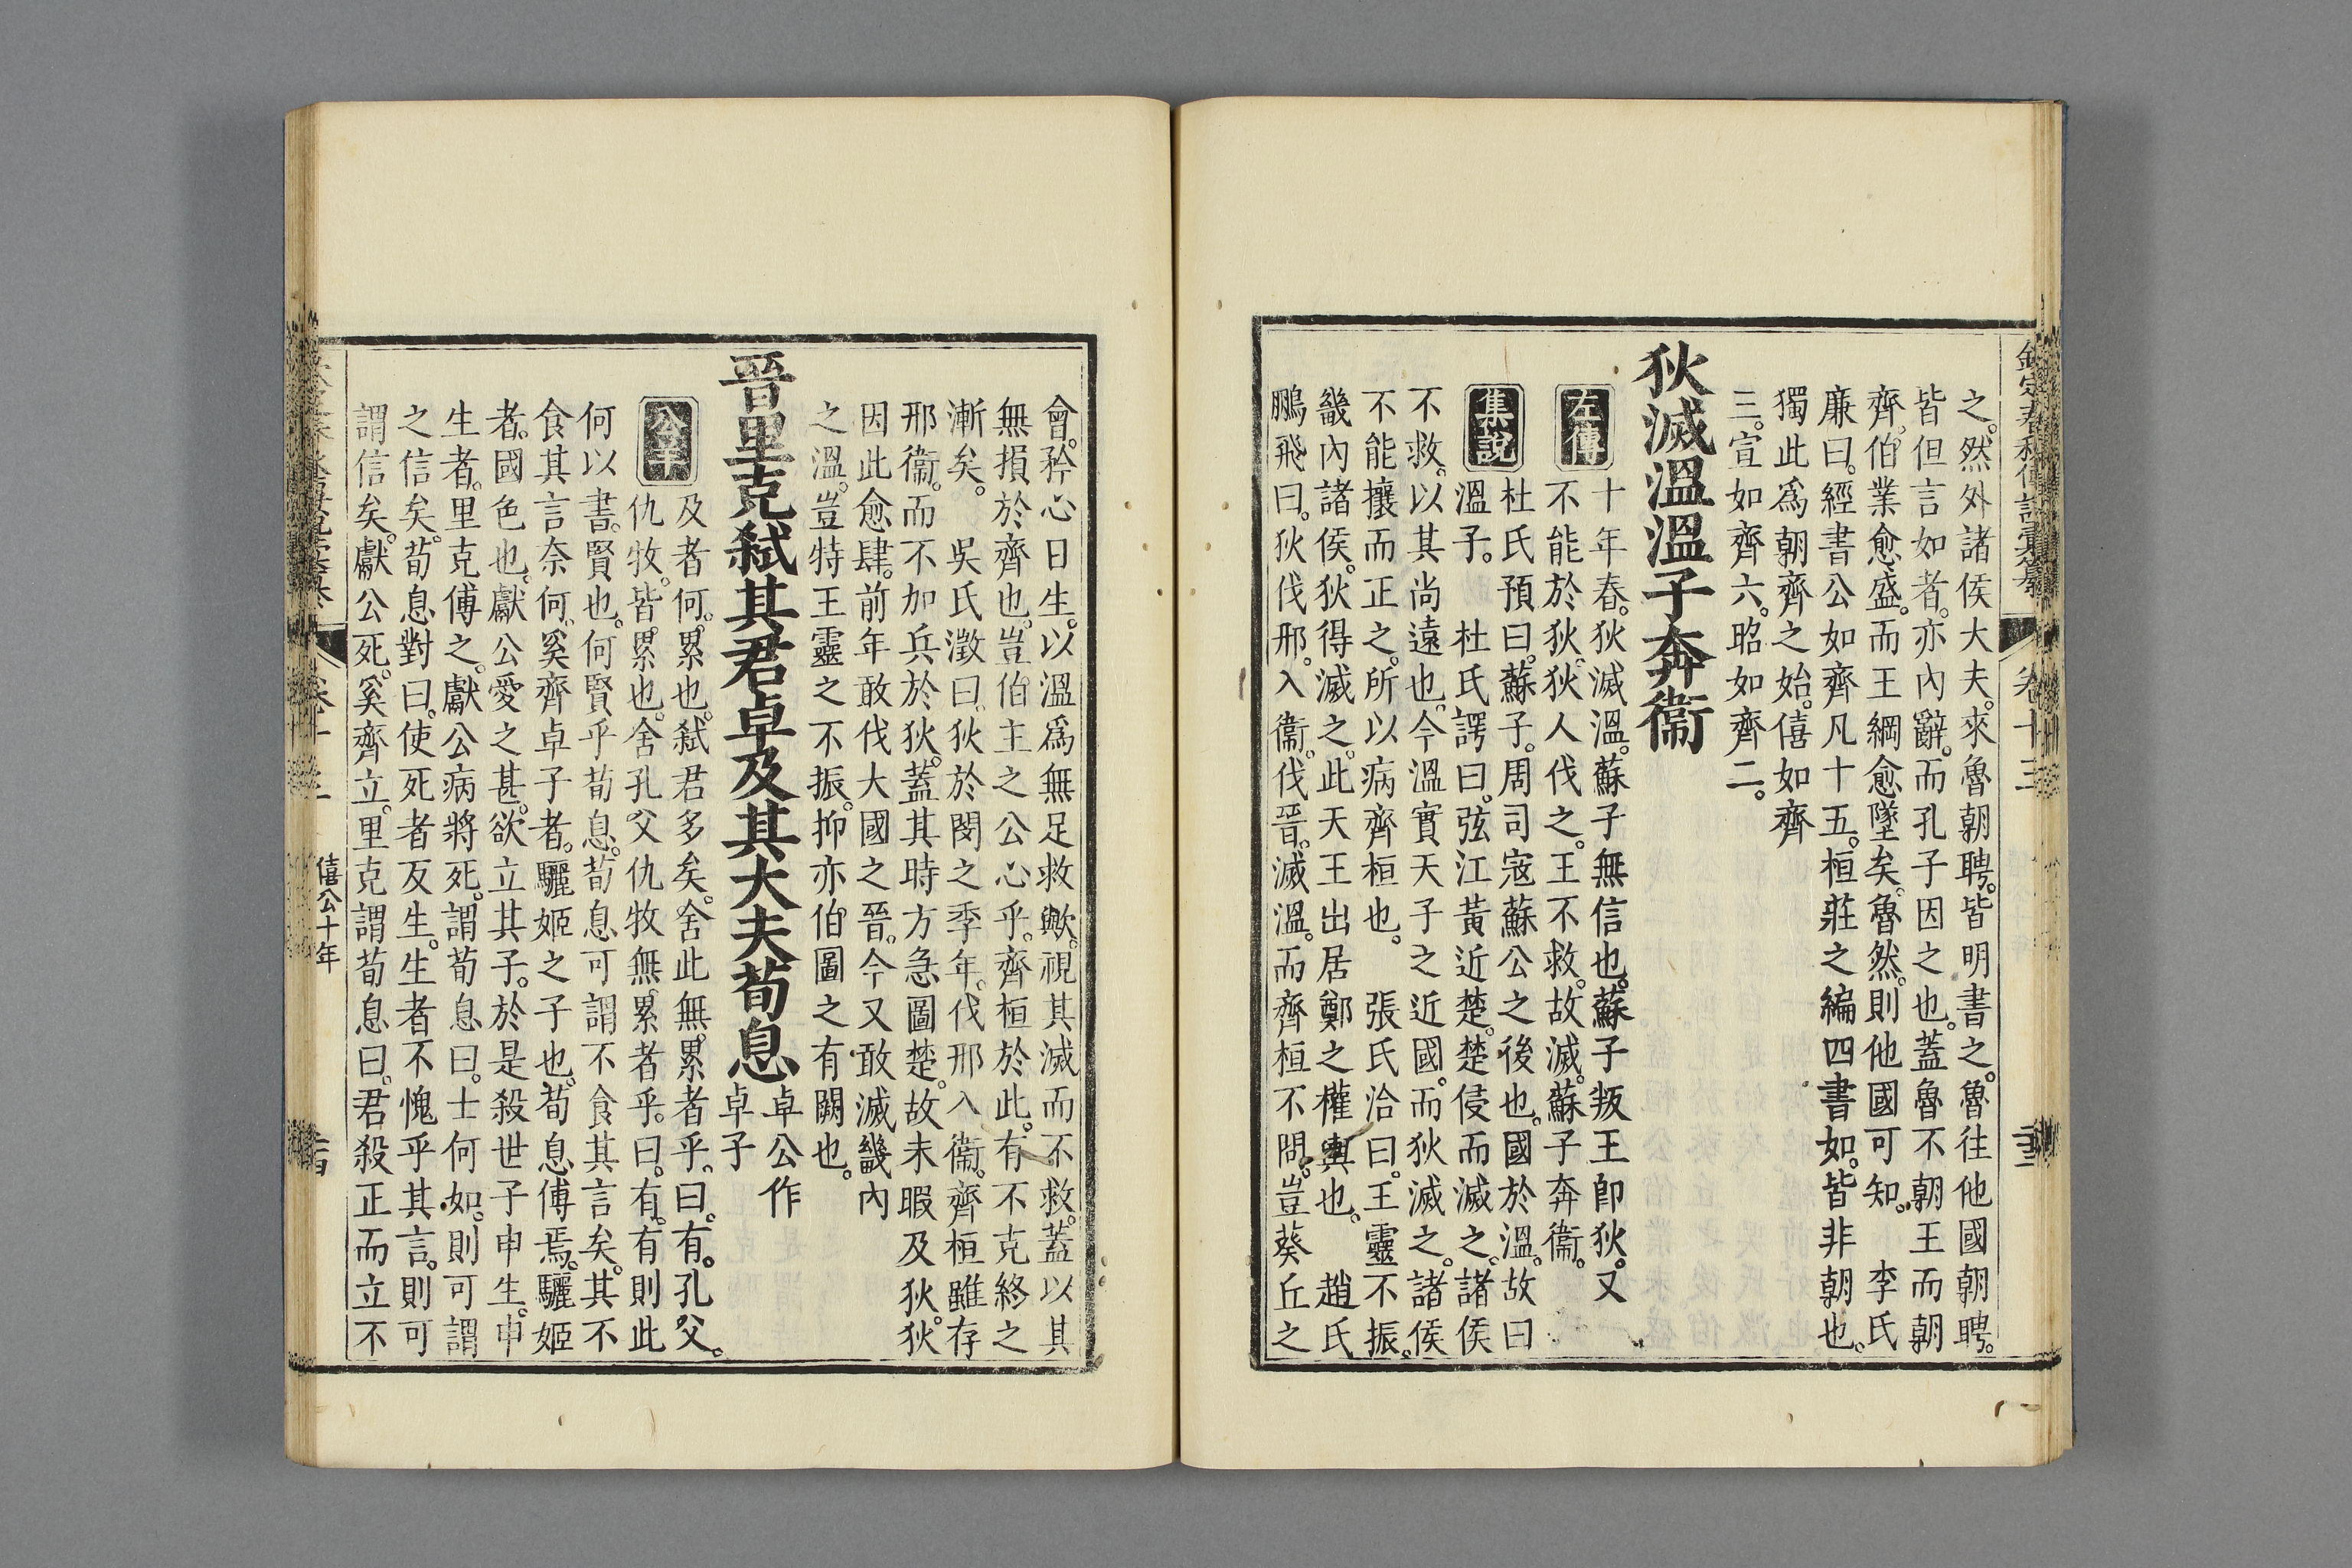 之。然外諸侯大夫。來魯朝聘。皆明書之。魯往他國朝聘。
皆但言如者。亦內辭。而孔子因之也。蓋魯不朝王而朝
齊。伯業愈盛。而王綱愈墜矣。魯然。則他國可知。 李氏
廉曰。經書公如齊凡十五。桓莊之編四書如。皆非朝也。
獨此爲朝齊之始。僖如齊
三。宣如齊六。昭如齊二。
狄滅溫溫子奔衞
左傳 十年春。狄滅溫。蘇子無信也。蘇子叛王卽狄。又
不能於狄。狄人伐之。王不救。故滅。蘇子奔衞。
集說 杜氏預曰。蘇子。周司寇蘇公之後也。國於溫。故曰
溫子。 杜氏諤曰。弦江黃近楚。楚侵而滅之。諸侯
不救。以其尚遠也。今溫實天子之近國。而狄滅之。諸侯
不能攘而正之。所以病齊桓也。 張氏洽曰。王靈不振。
畿內諸侯。狄得滅之。此天王出居鄭之權輿也。 趙氏
鵬飛曰。狄伐邢。入衞。伐晉。滅溫。而齊桓不問。豈葵丘之
欽定春秋傳說彙纂 卷十三
會。矜心日生。以溫爲無足救歟。視其滅而不救。蓋以其
無損於齊也。豈伯主之公心乎。齊桓於此。有不克終之
漸矣。 吳氏澂曰。狄於閔之季年。伐邢入衞。齊桓雖存
邢衞。而不加兵於狄。蓋其時方急圖楚。故未暇及狄。狄
因此愈肆。前年敢伐大國之晉。今又敢滅畿內
之溫。豈特王靈之不振。抑亦伯圖之有闕也。
晉里克弑其君卓及其大夫荀息 卓公作
卓子
公羊 及者何。累也。弑君多矣。舍此無累者乎。曰。有。孔父。
仇牧。皆累也。舍孔父仇牧無累者乎。曰。有。有則此
何以書。賢也。何賢乎荀息。荀息可謂不食其言矣。其不
食其言奈何。奚齊卓子者。驪姬之子也。荀息傅焉。驪姬
者。國色也。獻公愛之甚。欲立其子。於是殺世子申生。申
生者。里克傅之。獻公病將死。謂荀息曰。士何如。則可謂
之信矣。荀息對曰。使死者反生。生者不愧乎其言。則可
謂信矣。獻公死。奚齊立。里克謂荀息曰。君殺正而立不
僖公十年